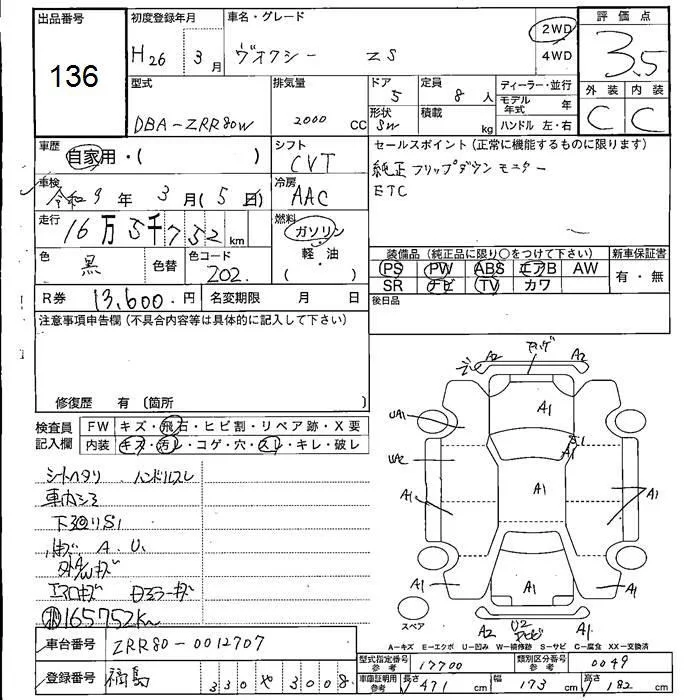 出品番号 初度登録年月 車名・グレード 評価点
136 H26 3月 ヴォクシー ZS 2WD 4WD 3.5
型式 排気量 ドア 5 定員 8人 ディーラー・並行 外装 内装
DBA-ZRR80W 2000 CC 形状 SW 積載 kg モデル年式 年 ハンドル 左・右 C C
車歴 自家用・( ) シフト CVT セールスポイント (正常に機能するものに限ります)
車検 令和9年3月(5日) 冷房 AAC 純正フリップダウンモニター
ETC
走行 16万5千752km 燃料 ガソリン 軽・油 ( )
色 黒 色替 色コード 202 装備品 (純正品に限り○をつけて下さい) 新車保証書
PS PW ABS エアB AW 有・無
SR ナビ TV カワ
R券 13,600円 名変期限 月 日 後日品
注意事項申告欄 (不具合内容等は具体的に記入して下さい)
修復歴 有 (箇所 )
検査員記入欄 FW キズ・飛石・ヒビ割・リペア跡・X要
内装 キズ・汚レ・コゲ・穴・スレ・キレ・破レ
シートヘタリ ハンドルスレ
車内シミ
下廻りS1
A. U.
エアロキズ
165752km
A2 A2
UA1 A1
UA2 S1
A1
A1 A1 A1
A1 A1 A1
スペア A2 U2 A1
A-キズ E-エクボ U-凹み W-補修跡 S-サビ C-腐食 XX-交換済
車台番号 ZRR80-0012707
型式指定番号 参考 17700 類別区分番号 参考 0049
登録番号 福島 330 や 3008
車庫証明用 参考 長さ 471 cm 幅 173 cm 高さ 182 cm